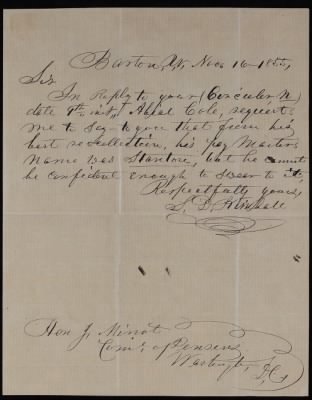 Barton, Vt, Nov. 16 1855,
Sir
In Reply to your (Circular N)
date 9th inst, Abial Cole, request
me to say to you that from his
best recollection, his pay Masters
name was Stanton, but he cannot
be confident enough to swear to it,
Respectfully yours,
Kimball
Hon J. Minot
Comr. of Pensions
Washington D.C.